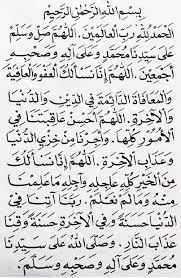 بِسْمِ اللهِ الرَّحْمٰنِ الرَّحِيْمِ
الْحَمْدُ لِلّٰهِ رَبِّ الْعَالَمِيْنَ. اَللّٰهُمَّ صَلِّ وَسَلِّمْ
عَلَى سَيِّدِنَا مُحَمَّدٍ وَعَلَى آلِهِ وَصَحْبِهِ
أَجْمَعِيْنَ. اَللّٰهُمَّ إِنَّا نَسْأَلُكَ الْعَفْوَ وَالْعَافِيَةَ
وَالْمُعَافَاةَ الدَّائِمَةَ فِي الدِّيْنِ وَالدُّنْيَا
وَالْآخِرَةِ. اَللّٰهُمَّ أَحْسِنْ عَاقِبَتَنَا فِي
الْأُمُوْرِ كُلِّهَا. وَأَجِرْنَا مِنْ خِزْيِ الدُّنْيَا
وَعَذَابِ الْآخِرَةِ. اَللّٰهُمَّ إِنَّا نَسْأَلُكَ
مِنَ الْخَيْرِ كُلِّهِ عَاجِلِهِ وَآجِلِهِ مَا عَلِمْنَا
مِنْهُ وَمَا لَمْ نَعْلَمْ. رَبَّنَا آتِنَا فِي
الدُّنْيَا حَسَنَةً وَفِي الْآخِرَةِ حَسَنَةً وَقِنَا
عَذَابَ النَّارِ. وَصَلَّى اللهُ عَلَى سَيِّدِنَا
مُحَمَّدٍ وَعَلَى آلِهِ وَصَحْبِهِ وَسَلَّمَ.